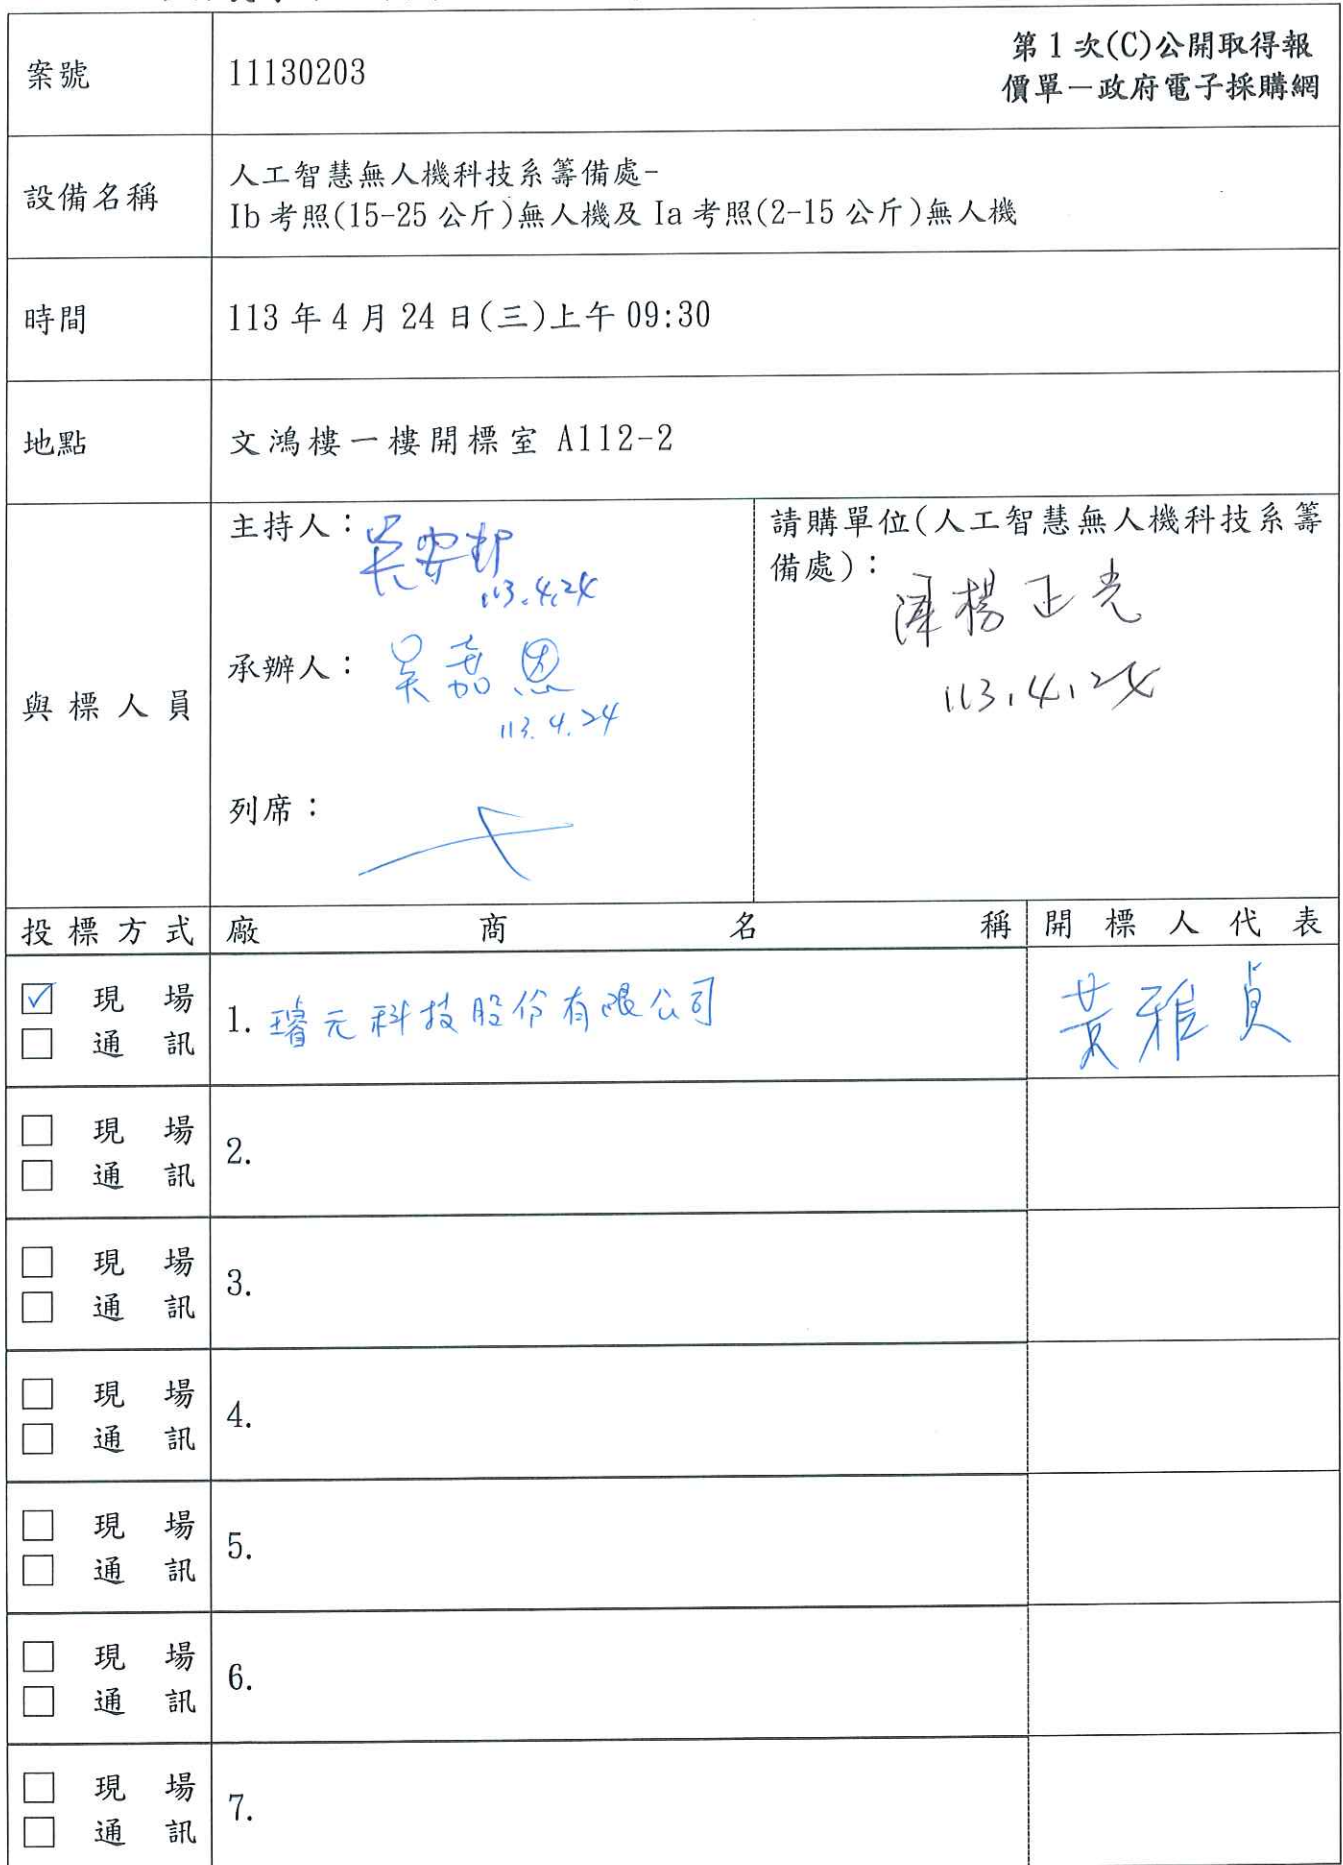 案號
11130203
第1次(C)公開取得報
價單－政府電子採購網
設備名稱
人工智慧無人機科技系籌備處-
Ib考照(15-25公斤)無人機及Ia考照(2-15公斤)無人機
時間
113年4月24日(三)上午09:30
地點
文鴻樓一樓開標室 A112-2
與標人員
主持人：吳安邦
113.4.24
承辦人：吳嘉恩
113.4.24
列席：
請購單位(人工智慧無人機科技系籌
備處)：
楊正光
113.4.24
投標方式 廠商名稱 開標人代表
☑ 現場
□ 通訊
1. 璿元科技股份有限公司
黃雅貞
□ 現場
□ 通訊
2.
□ 現場
□ 通訊
3.
□ 現場
□ 通訊
4.
□ 現場
□ 通訊
5.
□ 現場
□ 通訊
6.
□ 現場
□ 通訊
7.